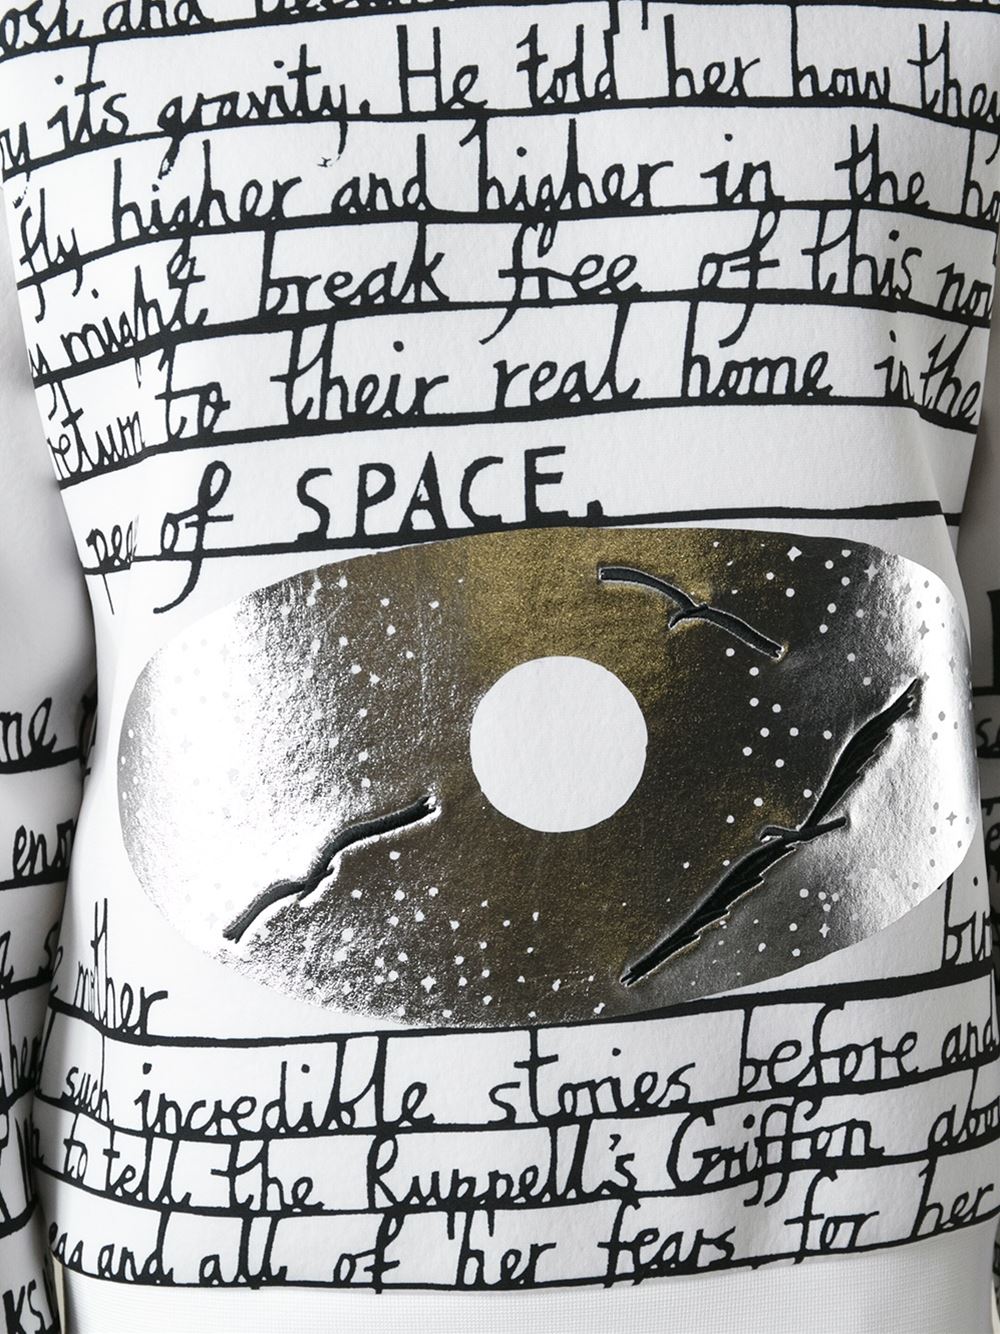 its gravity. He told her how they
fly higher and higher in the
might break free of this
return to their real home in the
of SPACE.
mother
such incredible stories before and
to tell the Ruppell's Griffon
and all of her fears for her